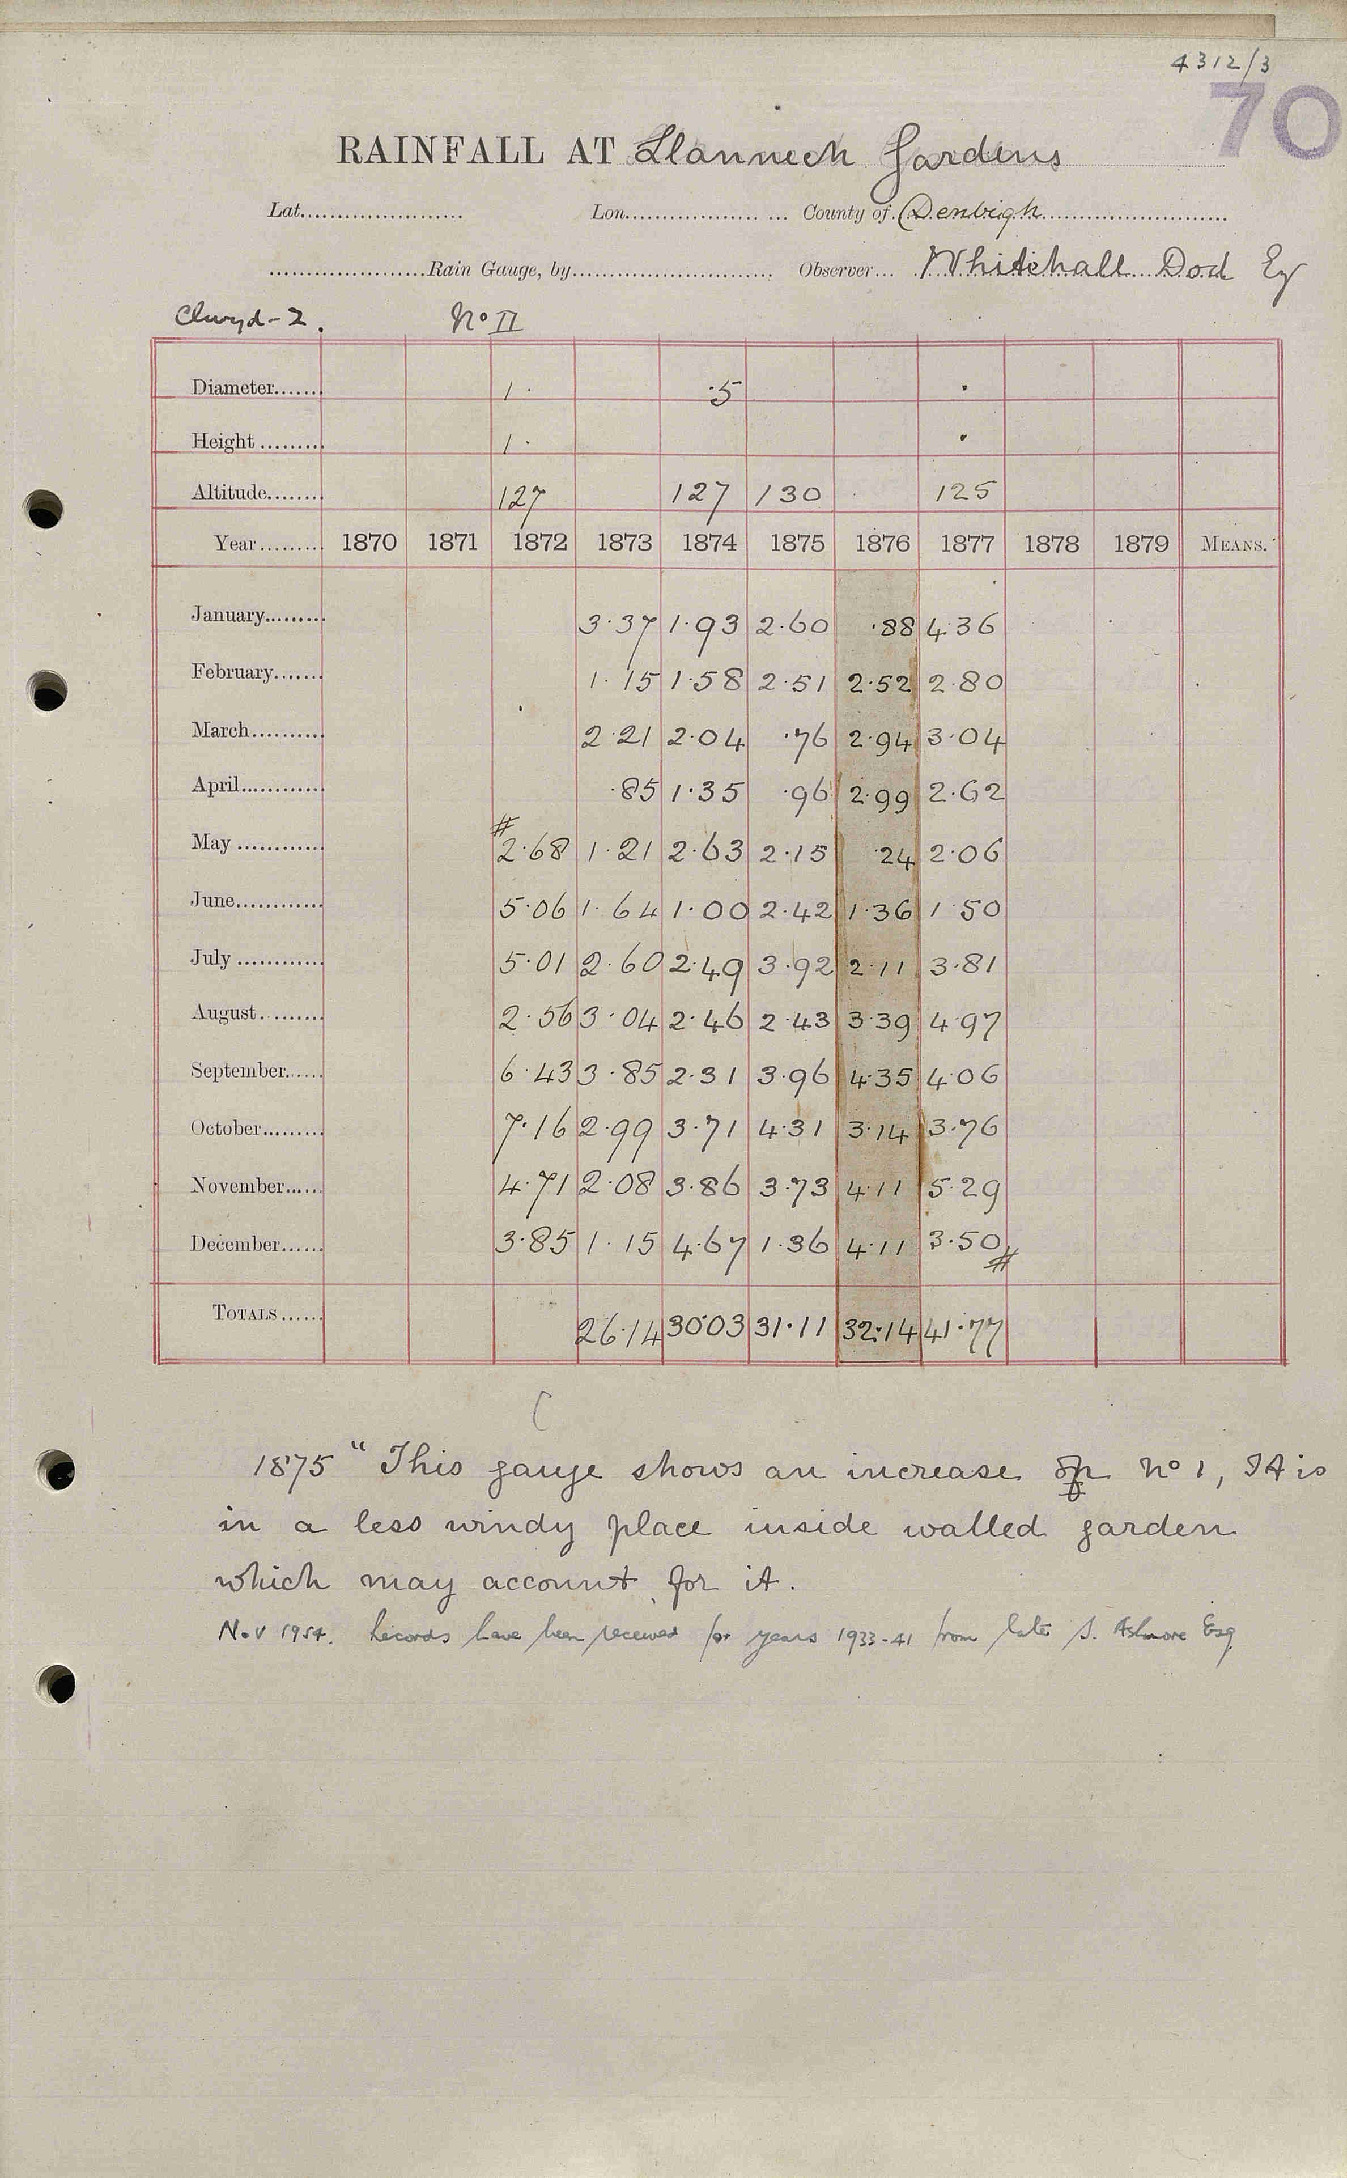 4312/3
70
RAINFALL AT Llannech Gardens
Lat. Lon. County of Denbigh
Rain Gauge, by Observer Whitehall Dod Eq
Clwyd-2. No II
Diameter 1 · ·5 ·
Height 1 · ·
Altitude 127 127 130 · 125
Year 1870 1871 1872 1873 1874 1875 1876 1877 1878 1879 MEANS.
January 3·37 1·93 2·60 ·88 4·36
February 1·15 1·58 2·51 2·52 2·80
March 2·21 2·04 ·76 2·94 3·04
April ·85 1·35 ·96 2·99 2·62
May #2·68 1·21 2·63 2·15 ·24 2·06
June 5·06 1·64 1·00 2·42 1·36 1·50
July 5·01 2·60 2·49 3·92 2·11 3·81
August 2·56 3·04 2·46 2·43 3·39 4·97
September 6·43 3·85 2·31 3·96 4·35 4·06
October 7·16 2·99 3·71 4·31 3·14 3·76
November 4·71 2·08 3·86 3·73 4·11 5·29
December 3·85 1·15 4·67 1·36 4·11 3·50#
TOTALS 26·14 30·03 31·11 32·14 41·77
1875 "This gauge shows an increase on No 1, It is
in a less windy place inside walled garden
which may account for it.
Nov 1954. Records have been received for years 1933-41 from late S. Ashmore Esq